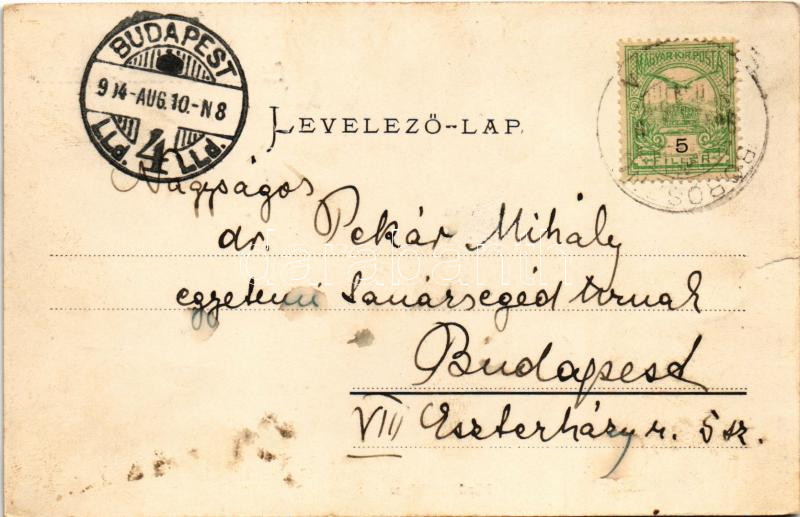 BUDAPEST
904-AUG.10.-N8
4
LLd. LLd.
MAGYAR KIR. POSTA
5
FILLÉR
LEVELEZŐ-LAP
Nagyságos
dr. Pekár Mihály
egyetemi tanársegéd úrnak
Budapest
VIII Eszterházy u. 5 sz.
darabanth